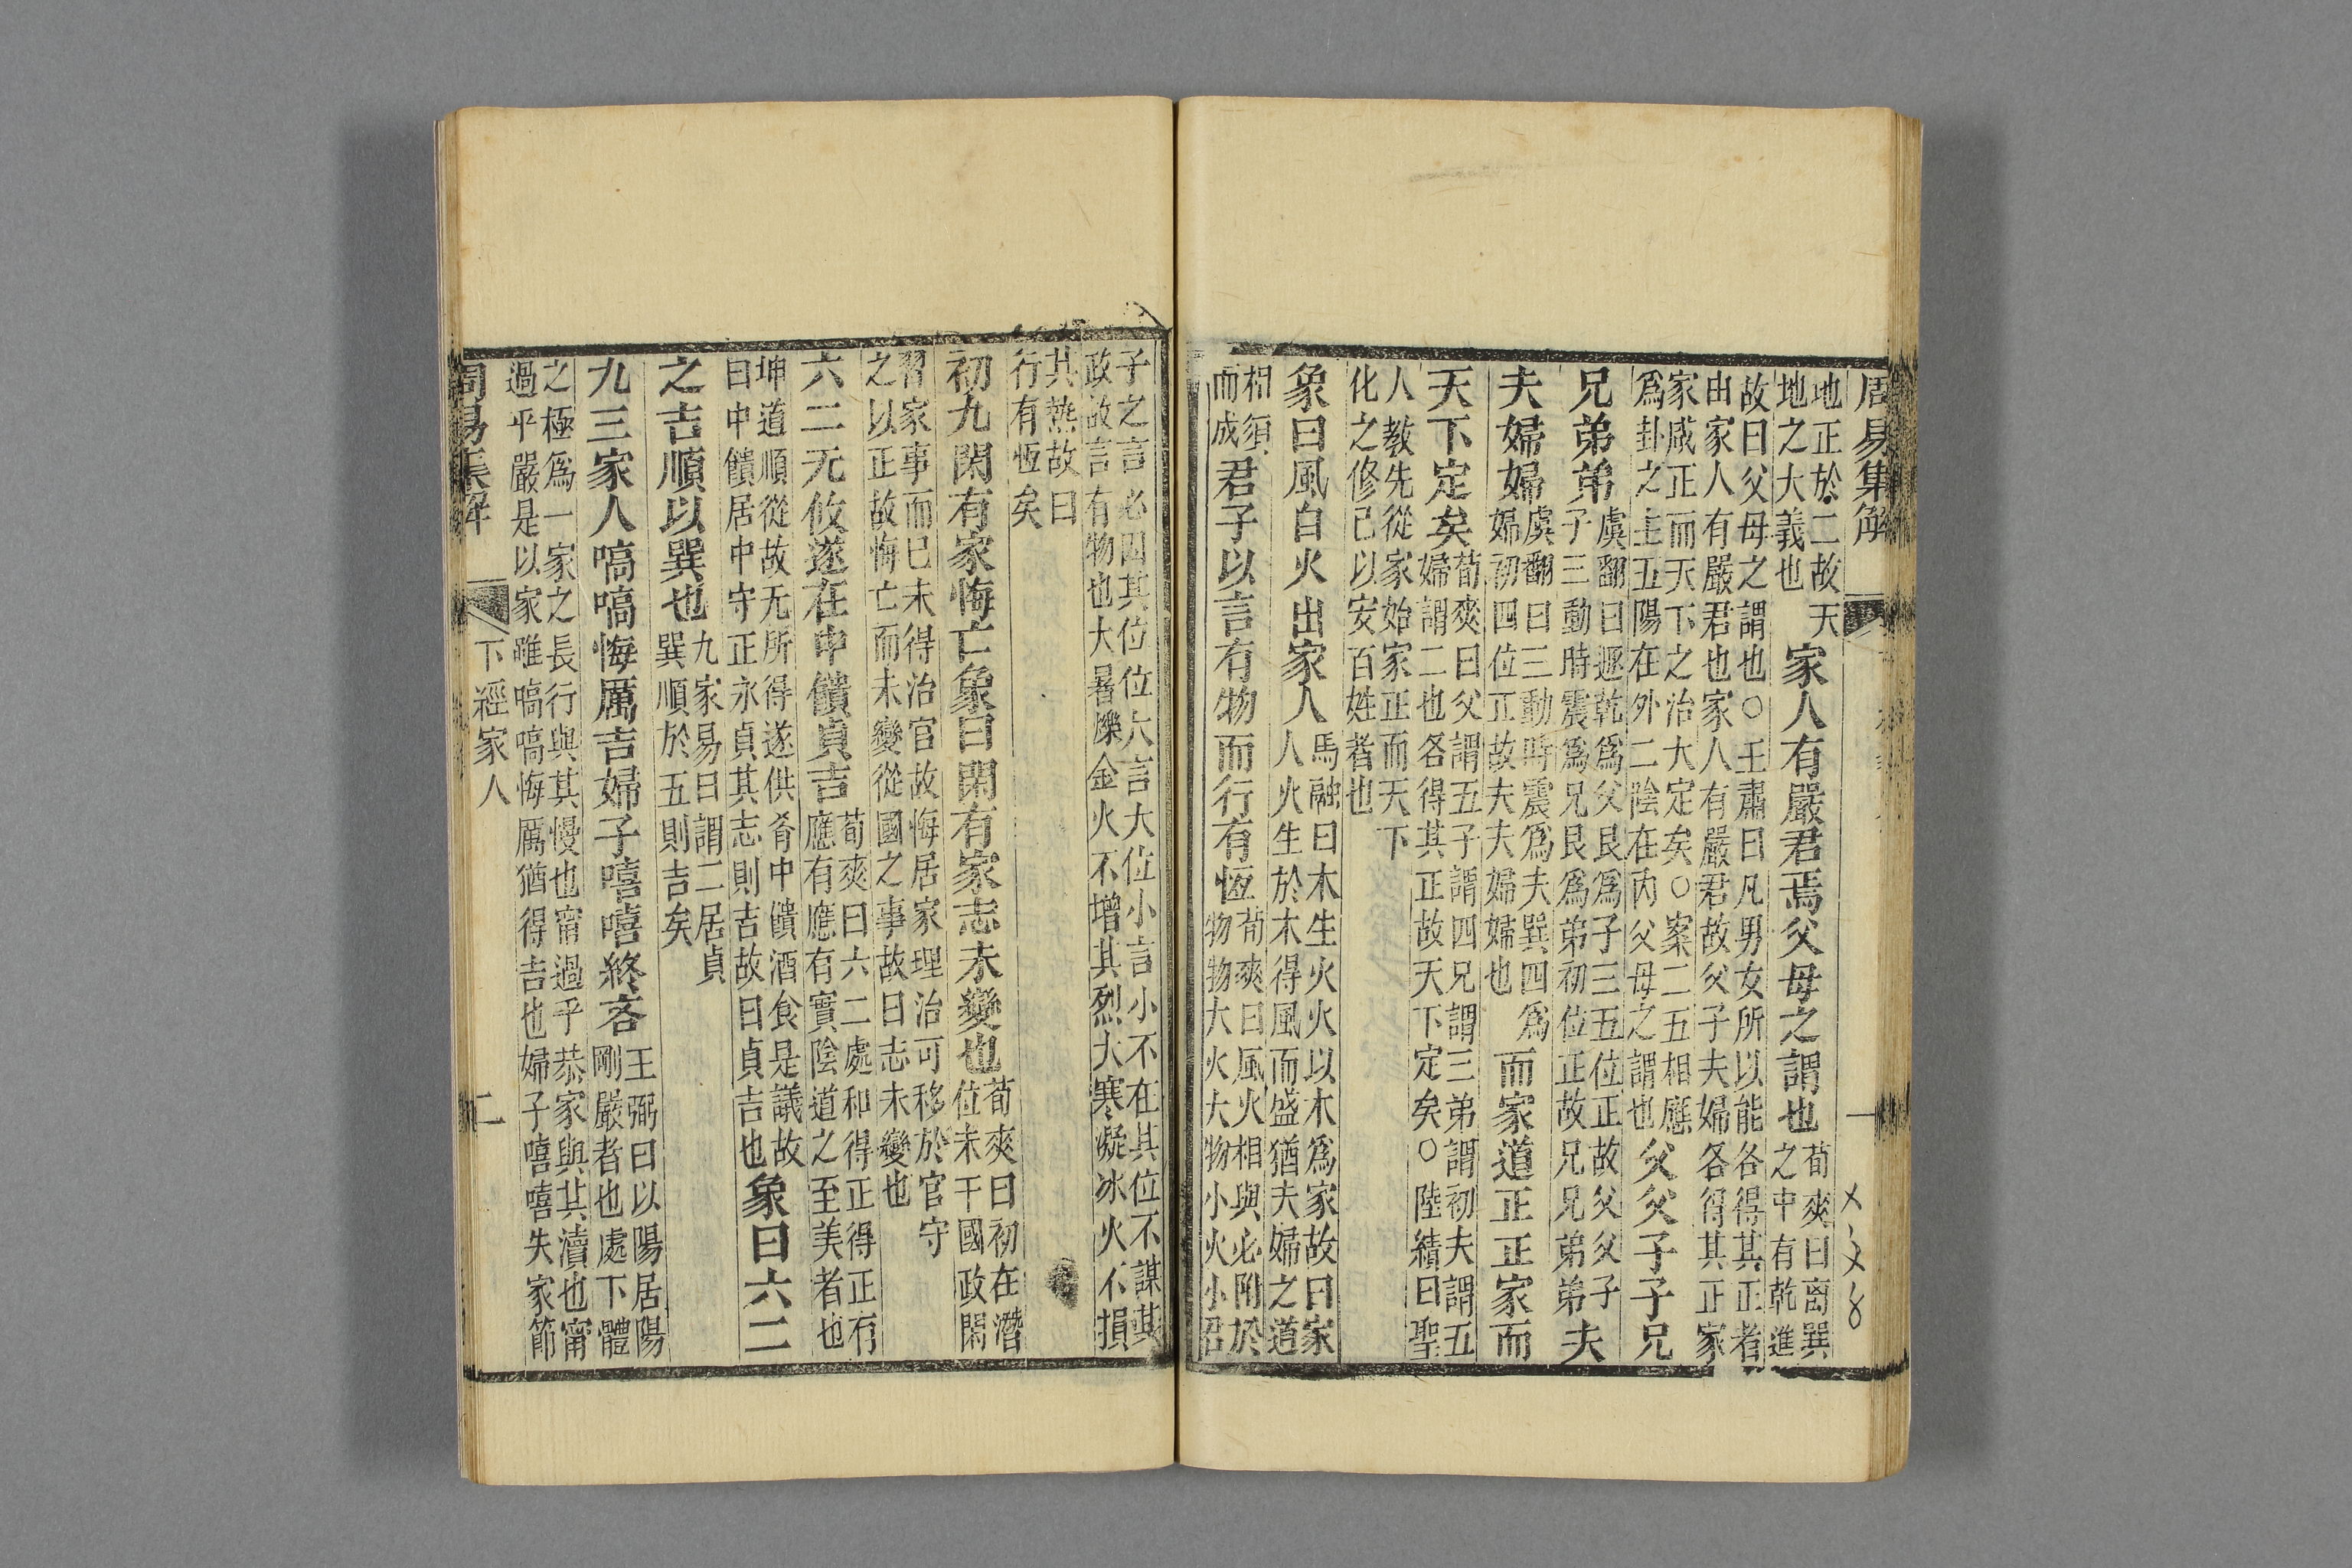 周易集解 一
地正於二故天地之大義也家人有嚴君焉父母之謂也荀爽曰离巽之中有乾進
故曰父母之謂也○王肅曰凡男女所以能各得其正者由家人有嚴君也家人有嚴君故父子夫婦各得其正家
家咸正而天下之治大定矣○案二五相應爲卦之主五陽在外二陰在內父母之謂也父父子子兄
兄弟弟虞翻曰遯乾爲父艮爲子三五位正故父父子子三動時震爲兄艮爲弟初位正故兄兄弟弟夫
夫婦婦虞翻曰三動時震爲夫巽四爲婦初四位正故夫夫婦婦也而家道正正家而
天下定矣荀爽曰父謂五子謂四兄謂三弟謂初夫謂五婦謂二也各得其正故天下定矣○陸績曰聖
人教先從家始家正而天下化之修己以安百姓者也
象曰風自火出家人馬融曰木生火火以木爲家故曰家人火生於木得風而盛猶夫婦之道
相須而成君子以言有物而行有恆荀爽曰風火相與必附於物物大火大物小火小君
子之言必因其位位大言大位小言小不在其位不謀其政故言有物也大暑爍金火不增其烈大寒凝冰火不損
其熱故曰行有恆矣
初九閑有家悔亡象曰閑有家志未變也荀爽曰初在潛位未干國政閑
習家事而已未得治官故悔居家理治可移於官守之以正故悔亡而未變從國之事故曰志未變也
六二无攸遂在中饋貞吉荀爽曰六二處和得正得正有應有應有實陰道之至美者也
坤道順從故无所得遂供肴中饋酒食是議故曰中饋居中守正永貞其志則吉故曰貞吉也象曰六二
之吉順以巽也九家易曰謂二居貞巽順於五則吉矣
九三家人嗃嗃悔厲吉婦子嘻嘻終吝王弼曰以陽居陽剛嚴者也處下體
之極爲一家之長行與其慢也甯過乎恭家與其瀆也甯過乎嚴是以家雖嗃嗃悔厲猶得吉也婦子嘻嘻失家節
周易集解 下經家人 二